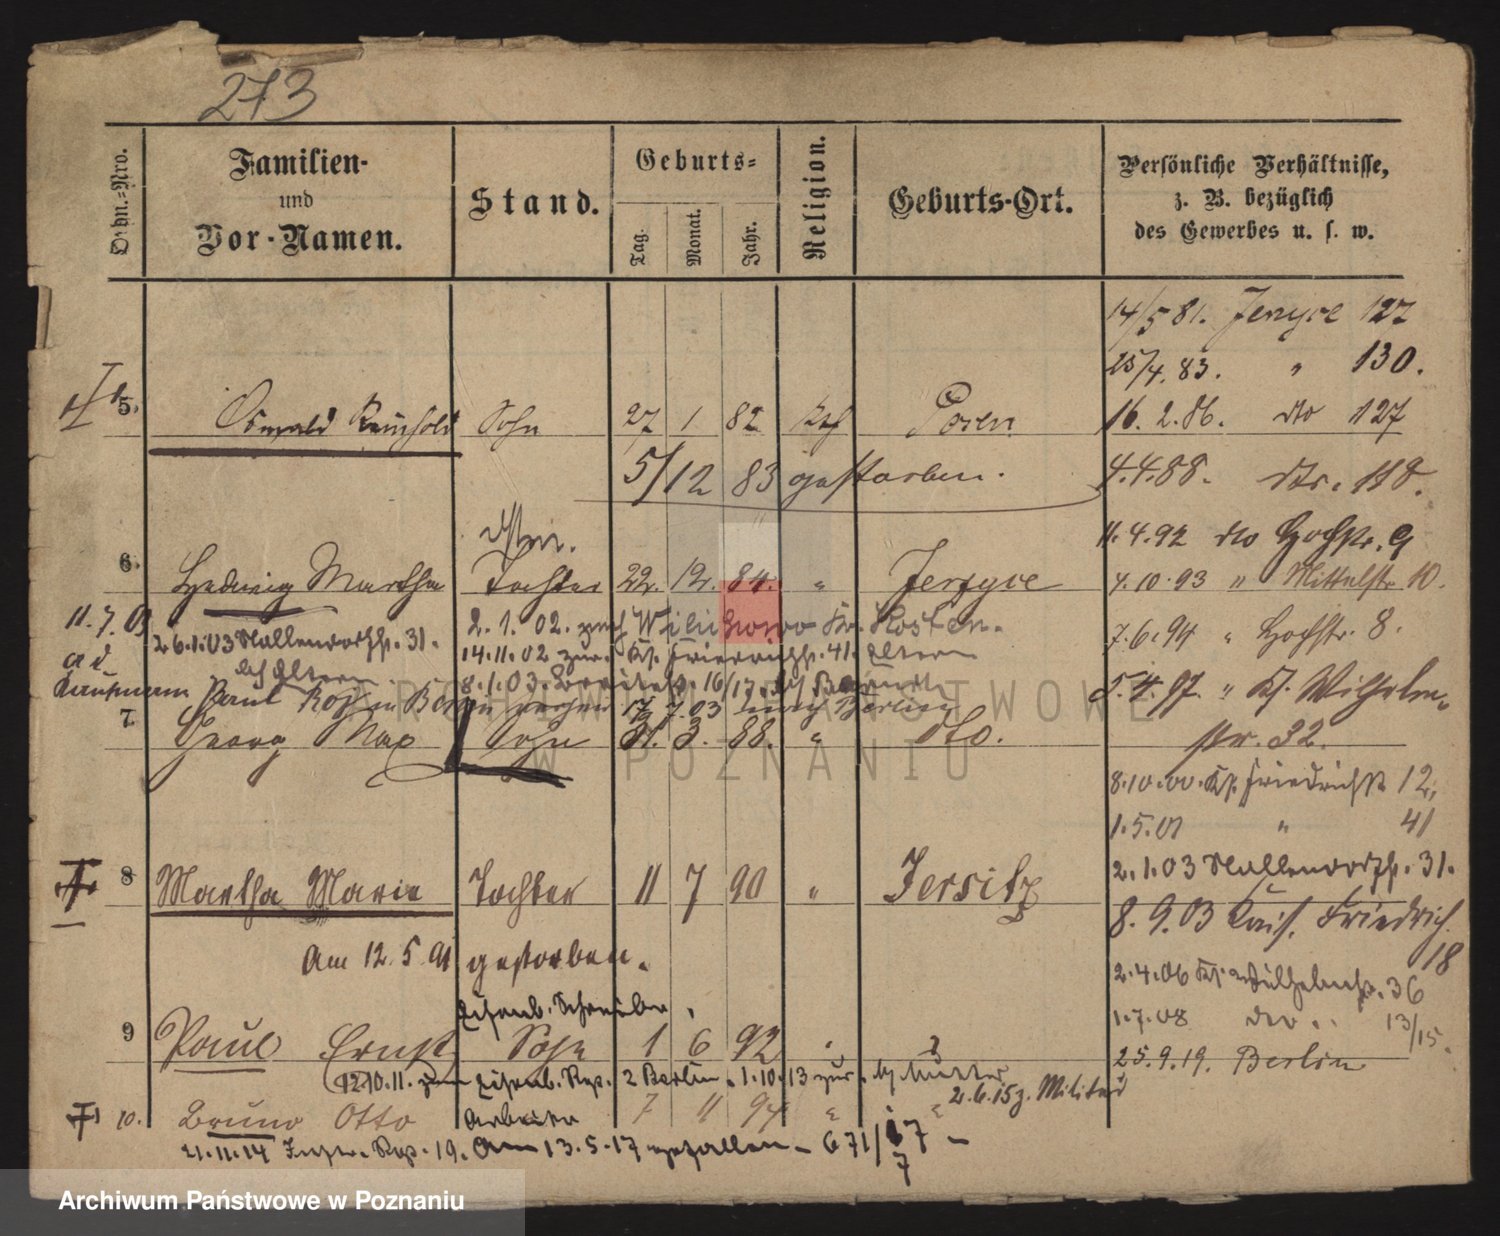 273
Ordn.-Nro. Familien- und Vor-Namen. Stand. Geburts- Tag. Monat. Jahr. Religion. Geburts-Ort. Persönliche Verhältnisse, z. B. bezüglich des Gewerbes u. s. w.
14/5 81. Jerzyce 127
25/4. 83. " 130.
5. Oswald Reinhold Sohn 27 1 82 Kth Posen
16. 2. 86. dto 127
5/12 83 gestorben.
4.4.88. dto. 118.
11.4.92 dto Hochstr. 9
6. Hedwig Martha Tochter 22. 12. 84. " Jerzyce
7.10.93 " Mittelstr 10.
11.7.03
2. 1. 02. nach Kr. Kosten.
7.6.94 " Hochstr. 8.
26.1.03 Nollendorfstr. 31.
14.11.02 zur. Ks. Friedrichstr. 41. Eltern
ad
bei Eltern
8.1.03. 16/17. bei
5.4.97. " Ks. Wilhelm-
Kaufmann Paul
17.7.03 nach Berlin
7. Georg Max Sohn 31. 3. 88. " dto.
str. 32.
8.10.00. Ks. Friedrichstr 12,
1.5.01 " 41
2.1.03 Nollendorfstr. 31.
8 Martha Marie Tochter 11 7 90 " Jersitz
8. 9.03 Kais. Friedrich.
18
Am 12. 5. 91 gestorben.
2.4.06 Ks. Wilhelmstr. 36
Eisenb. Schreiber.
1.7.08 dto .. 13/15.
9 Paul Ernst Sohn 1 6 92 "
25.9.19. Berlin
12.10.11. zum Eisenb. Reg. 2 Berlin. 1.10.13 zur. Mutter
2.6.15 z. Militär
10. Bruno Otto Arbeiter 7 11 94 " "
21.11.14 Reg. 19. Am 13.5.17 gefallen - 671/17 -
7
Archiwum Państwowe w Poznaniu
ARCHIWUM PAŃSTWOWE
W POZNANIU